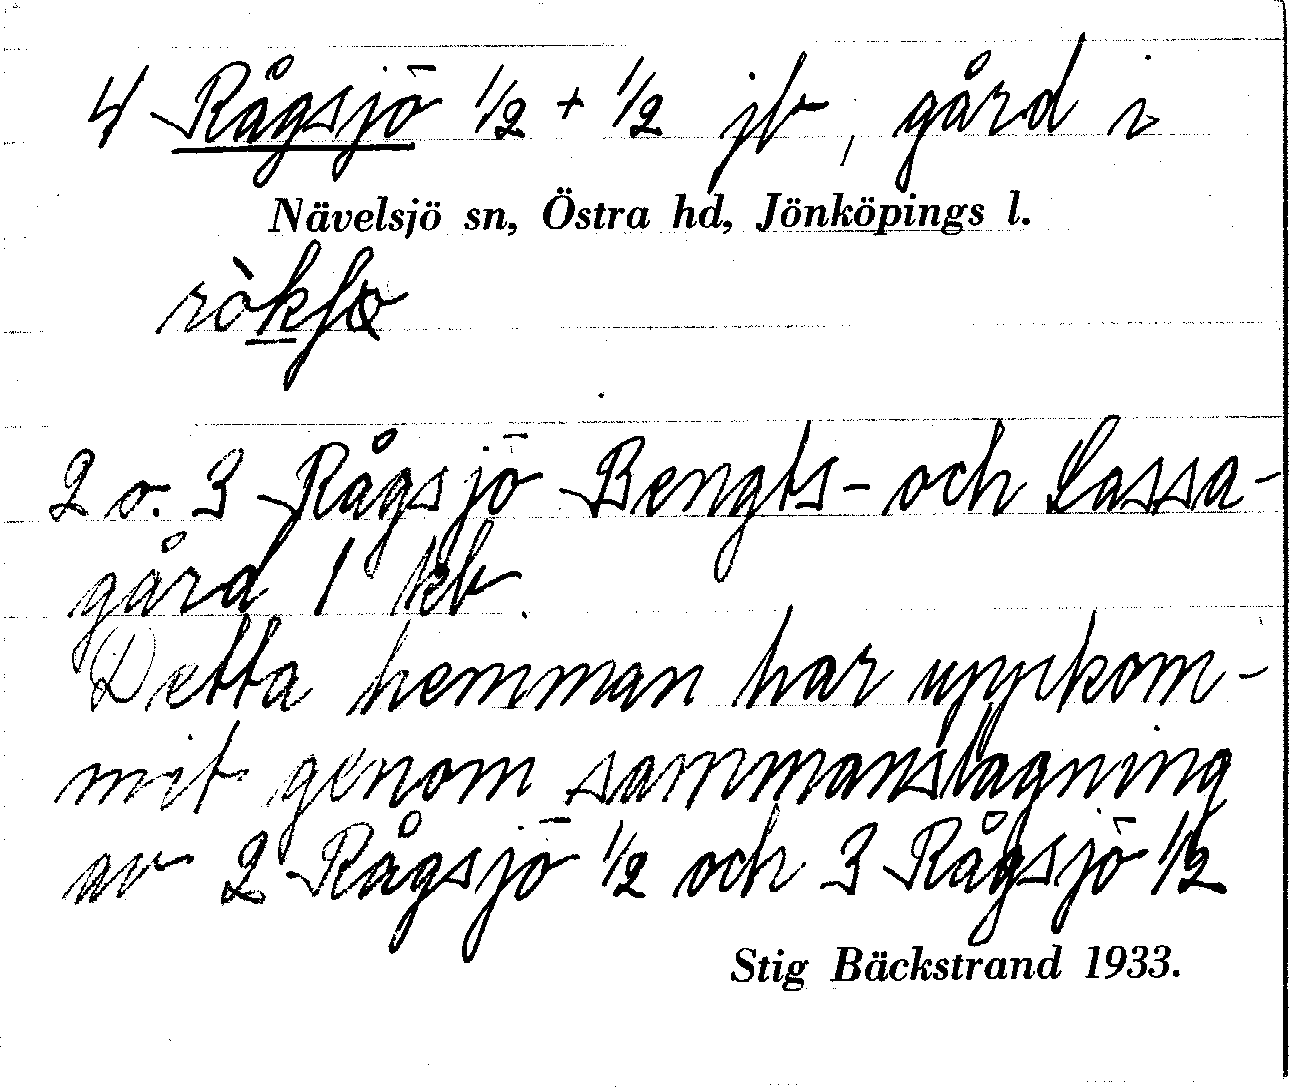 4 Rågsjö 1/2 + 1/2 jb, gård i
Nävelsjö sn, Östra hd, Jönköpings l.
2 o. 3 Rågsjö Bengts- och Lassa-
gård 1 kb.
Detta hemman har uppkom-
mit genom sammanslagning
av 2 Rågsjö 1/2 och 3 Rågsjö 1/2
Stig Bäckstrand 1933.